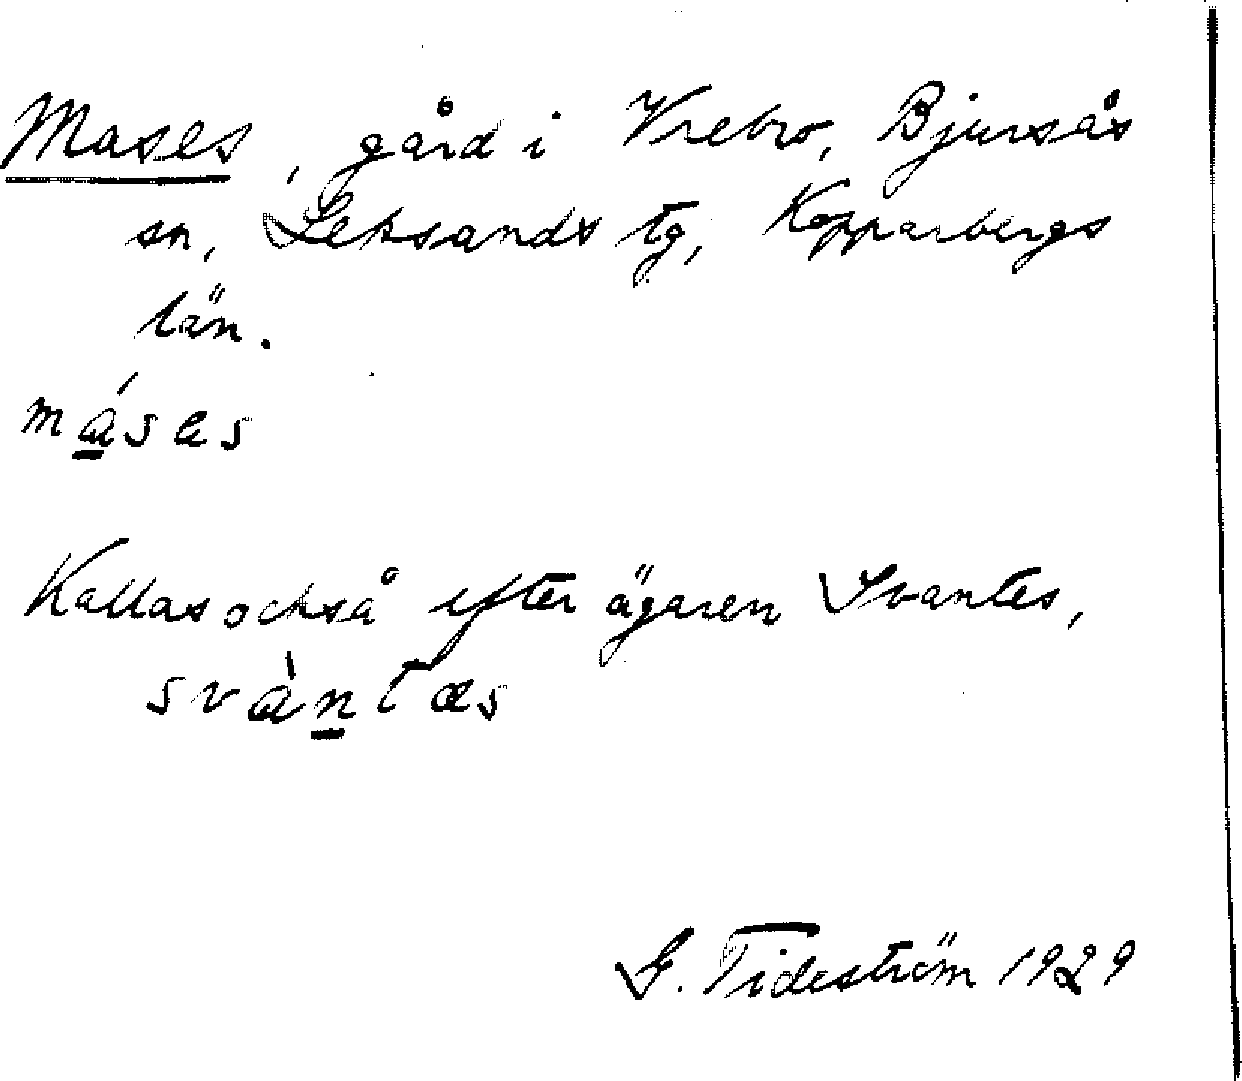 Mases, gård i Vrebro, Bjursås
sn, Leksands tg, Kopparbergs
län.
má̱ses
Kallas också efter ägaren Svantes,
svàṉtæs
G. Tideström 1929